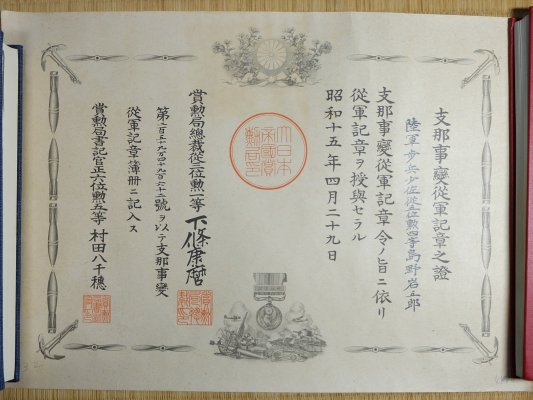 支那事變從軍記章之證
陸軍歩兵少佐從六位勲四等高野岩五郎
支那事變從軍記章令ノ旨ニ依リ
從軍記章ヲ授與セラル
昭和十五年四月二十九日
大日本
帝國賞
勲局印
賞勲局總裁從三位勲一等下條康麿
第二百五十九万四千九百六十二號ヲ以テ支那事變
從軍記章簿册ニ記入ス
賞勲局書記官正六位勲五等村田八千穂